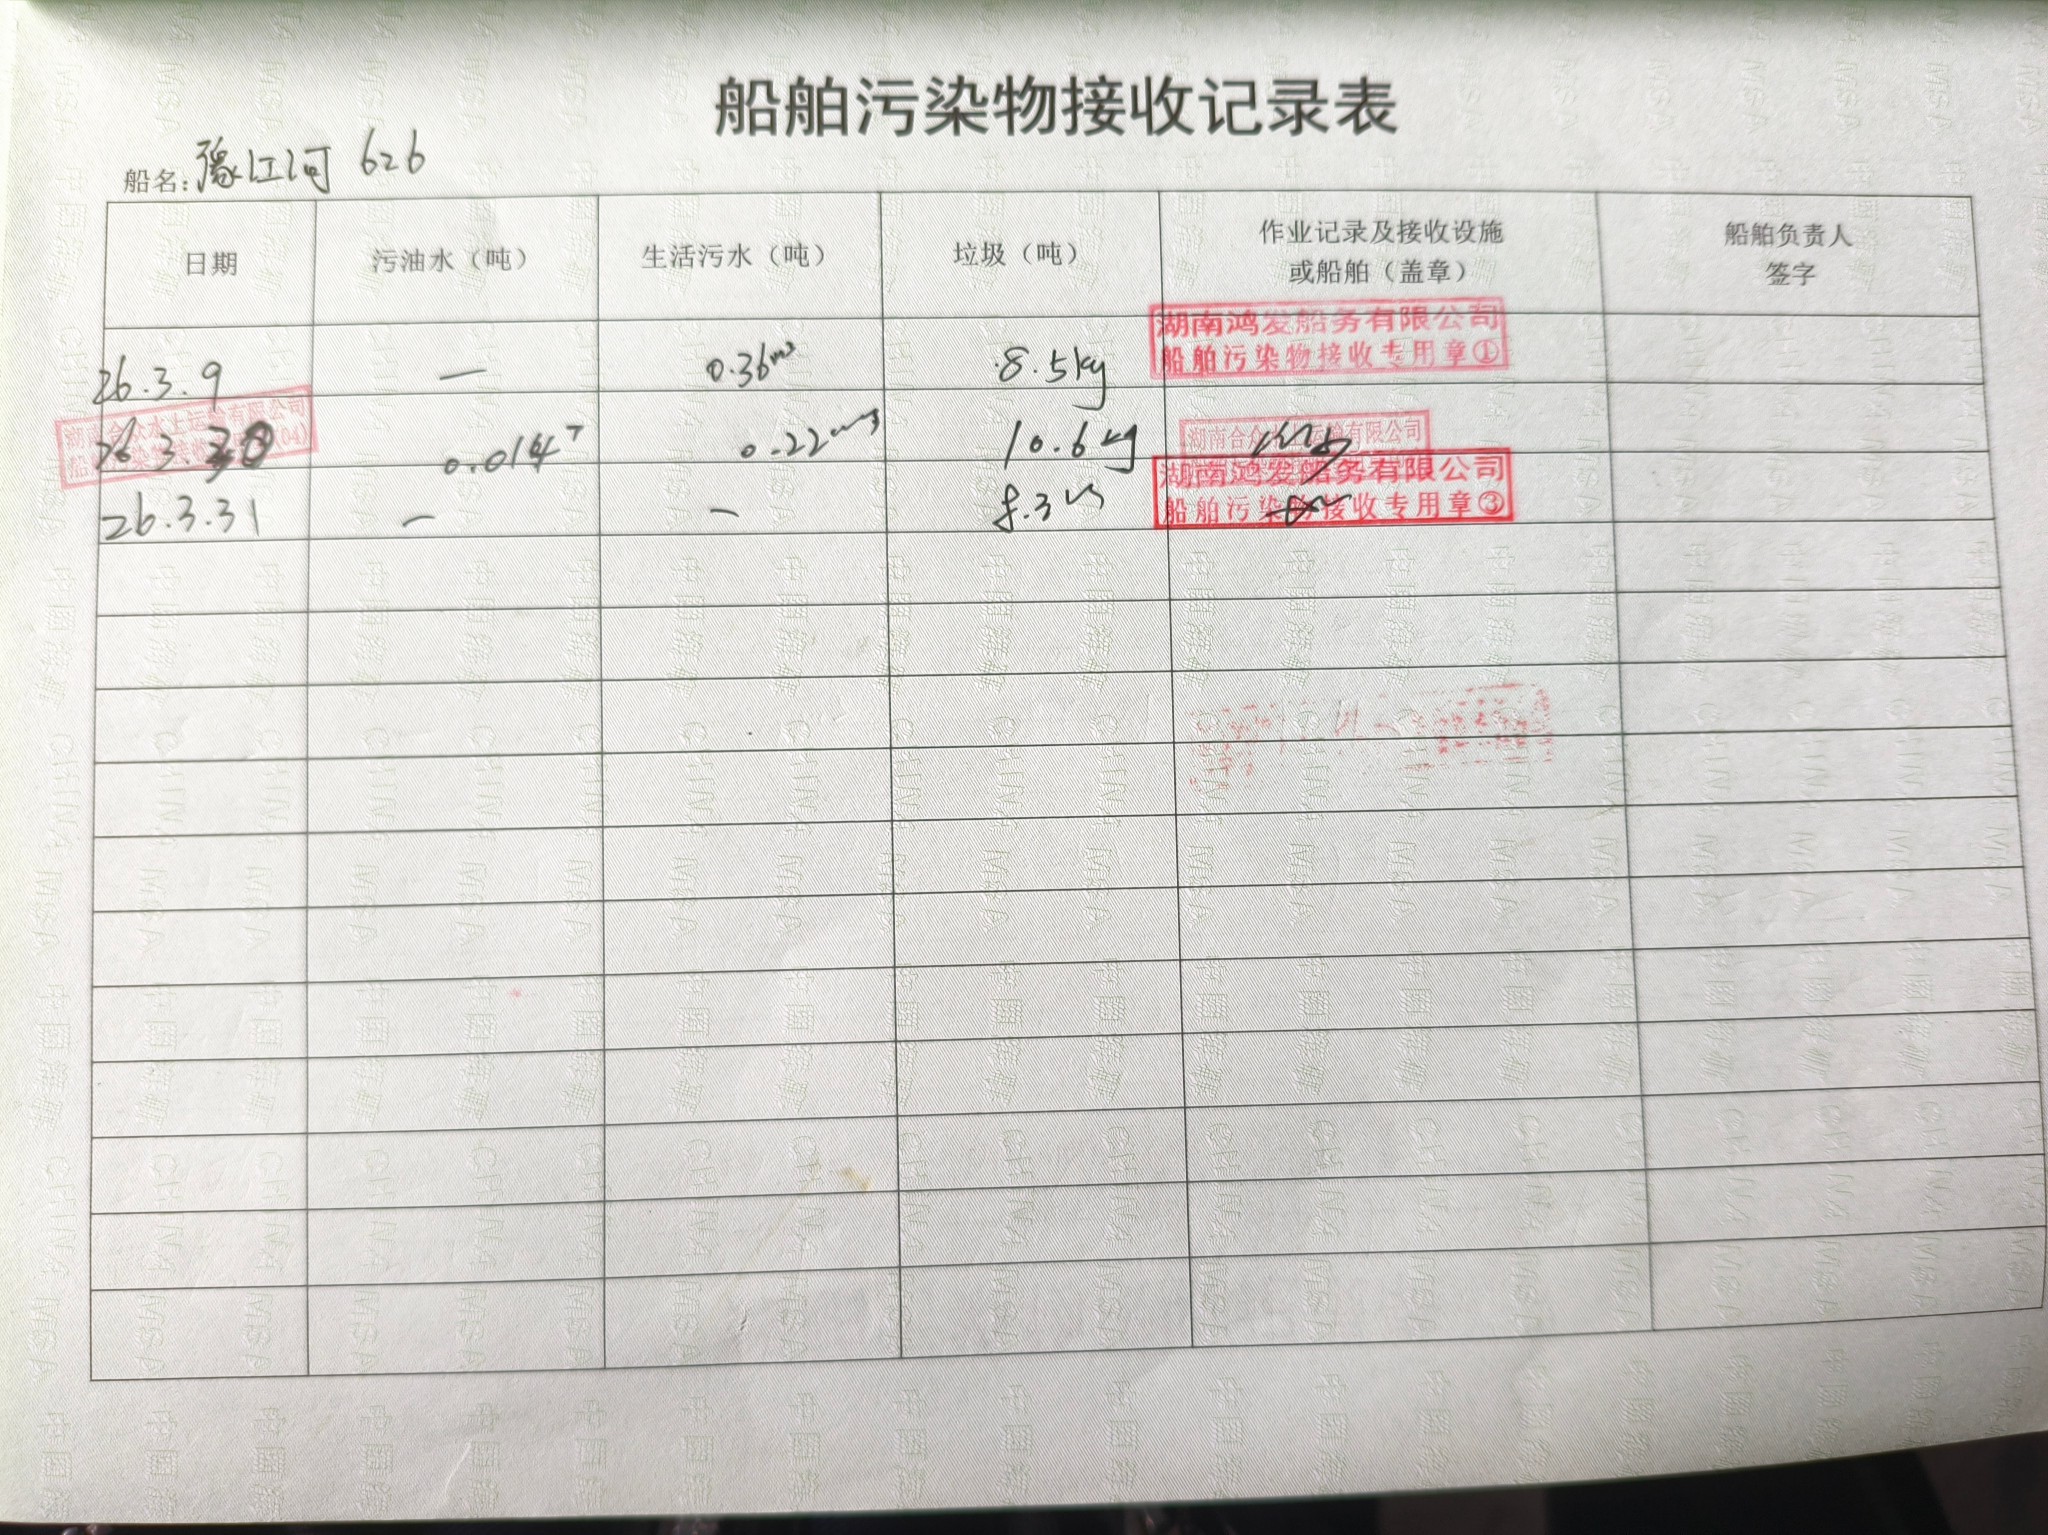 船舶污染物接收记录表
船名:豫江河 626
日期 污油水（吨） 生活污水（吨） 垃圾（吨） 作业记录及接收设施或船舶（盖章） 船舶负责人签字
26.3.9 — 0.36m³ 8.5kg
湖南鸿发船务有限公司
船舶污染物接收专用章①
湖南合众水上运输有限公司
船舶污染物接收
26.3.30 0.014T 0.22m³ 10.6kg
湖南合众 运输有限公司
26.3.31 — — 8.3
湖南鸿发船务有限公司
船舶污染物接收专用章③